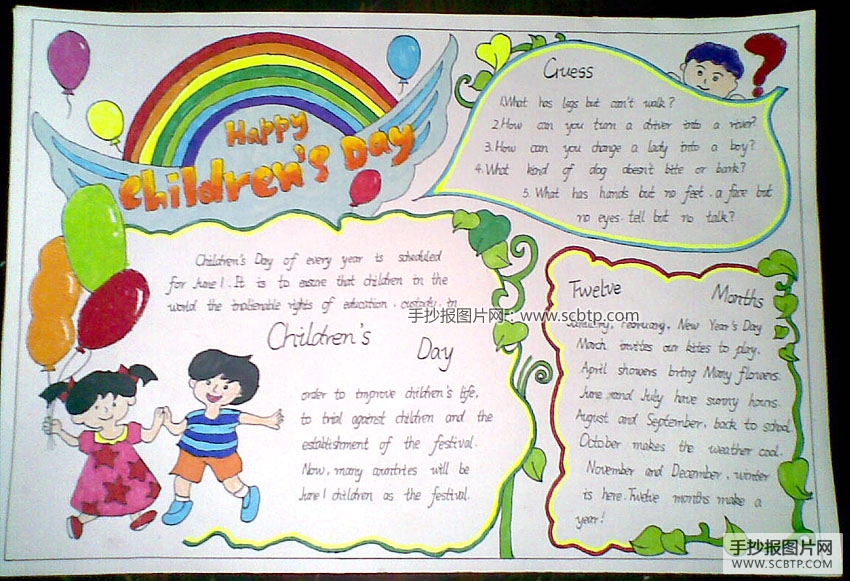 Happy
Children's Day
Guess
1.What has legs but can't walk?
2.How can you turn a driver into a river?
3.How can you change a lady into a boy?
4.What kind of dog doesn't bite or bark?
5.What has hands but no feet.a face but
no eyes.tell but no talk?
Children's Day of every year is scheduled
for June 1.It is to ensure that children in the
world the inalienable rights of education.custody.in
手抄报图片网:www.scbtp.com
Children's
Day
order to improve children's life,
to trial against children and the
establishment of the festival.
Now,many countries will be
June 1 children as the festival.
Twelve
Months
January, February, New Year's Day
March invites our kites to play,
April showers bring Many flowers.
June and July have sunny hours.
August and September, back to school
October makes the weather cool.
November and December, winter
is here.Twelve months make a
year!
手抄报图片网
WWW.SCBTP.COM